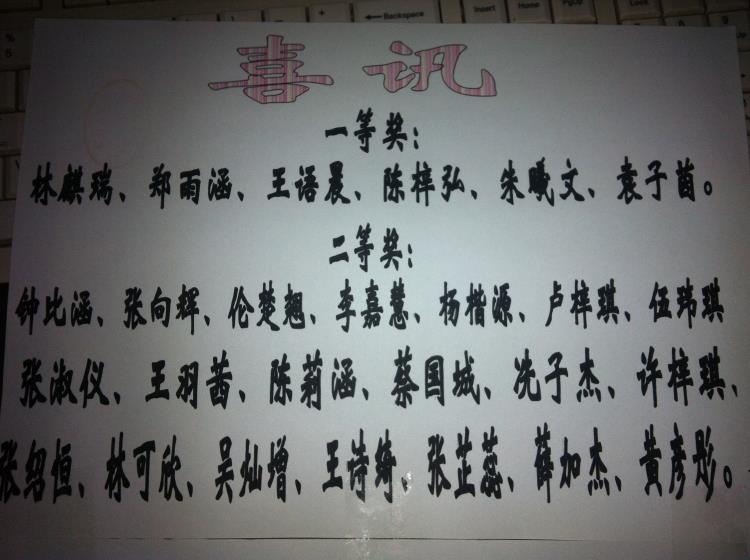 Backspace
Insert
Home
PgUp
%
5
喜讯
一等奖：
林麒瑞、郑雨涵、王语晨、陈梓弘、朱曦文、袁子茵。
二等奖：
钟比涵、张向辉、伦楚翘、李嘉慧、杨楷源、卢梓琪、伍玮琪
张淑仪、王羽茜、陈莉涵、蔡国城、冼子杰、许梓琪、
张绍恒、林可欣、吴灿增、王诗绮、张芷蕊、薛加杰、黄彦彤。